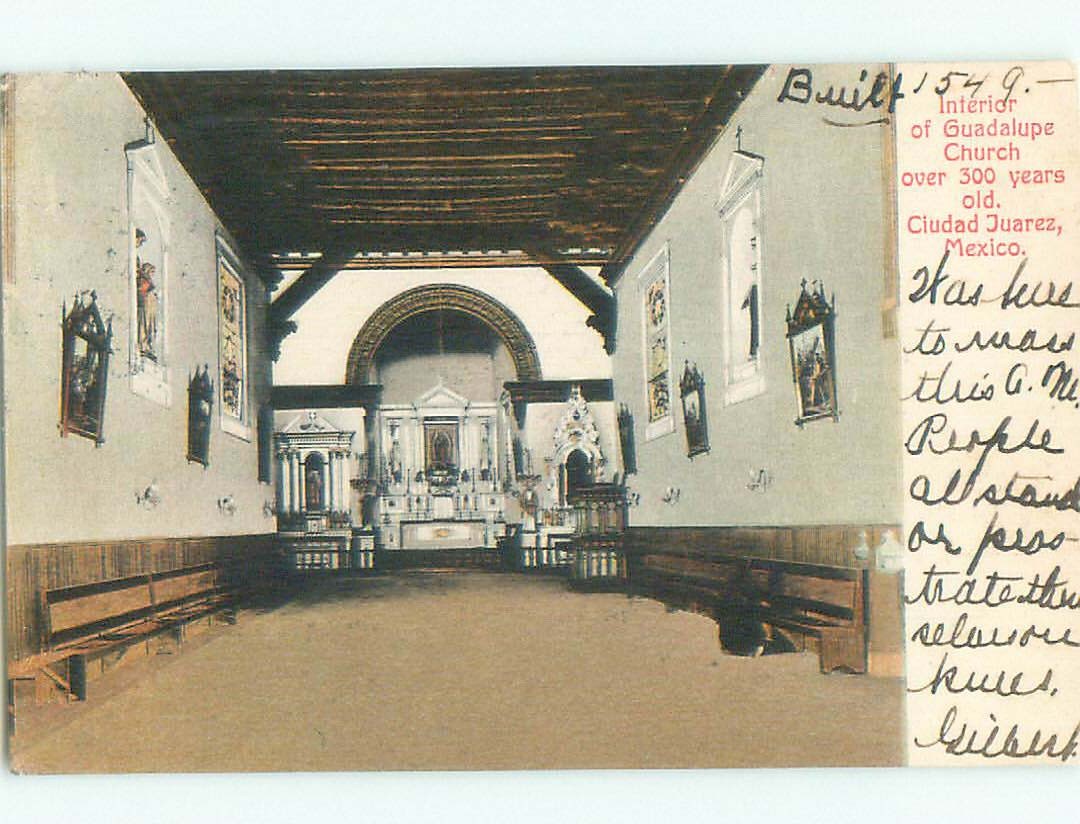 Built 1549.—
Interior
of Guadalupe
Church
over 300 years
old.
Ciudad Juarez,
Mexico.
Was here
to mass
this A. M.
People
all stand
or pros-
trate them
selves on
knees.
Gilbert